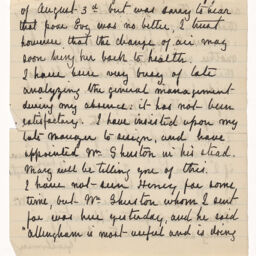 of August 3rd but was sorry to hear
that poor Evy was no better, I trust
however that the change of air may
soon bring her back to health.
I have been very busy of late
analyzing the general management
during my absence: it has not been
satisfactory. I have insisted upon my
late manager to resign, and have
appointed Mr Shuston in his stead.
Mary will be telling you of this.
I have not seen Henry for some
time, but Mr Shuston whom I sent
for was here yesterday, and he said
"Allingham is most useful and is doing